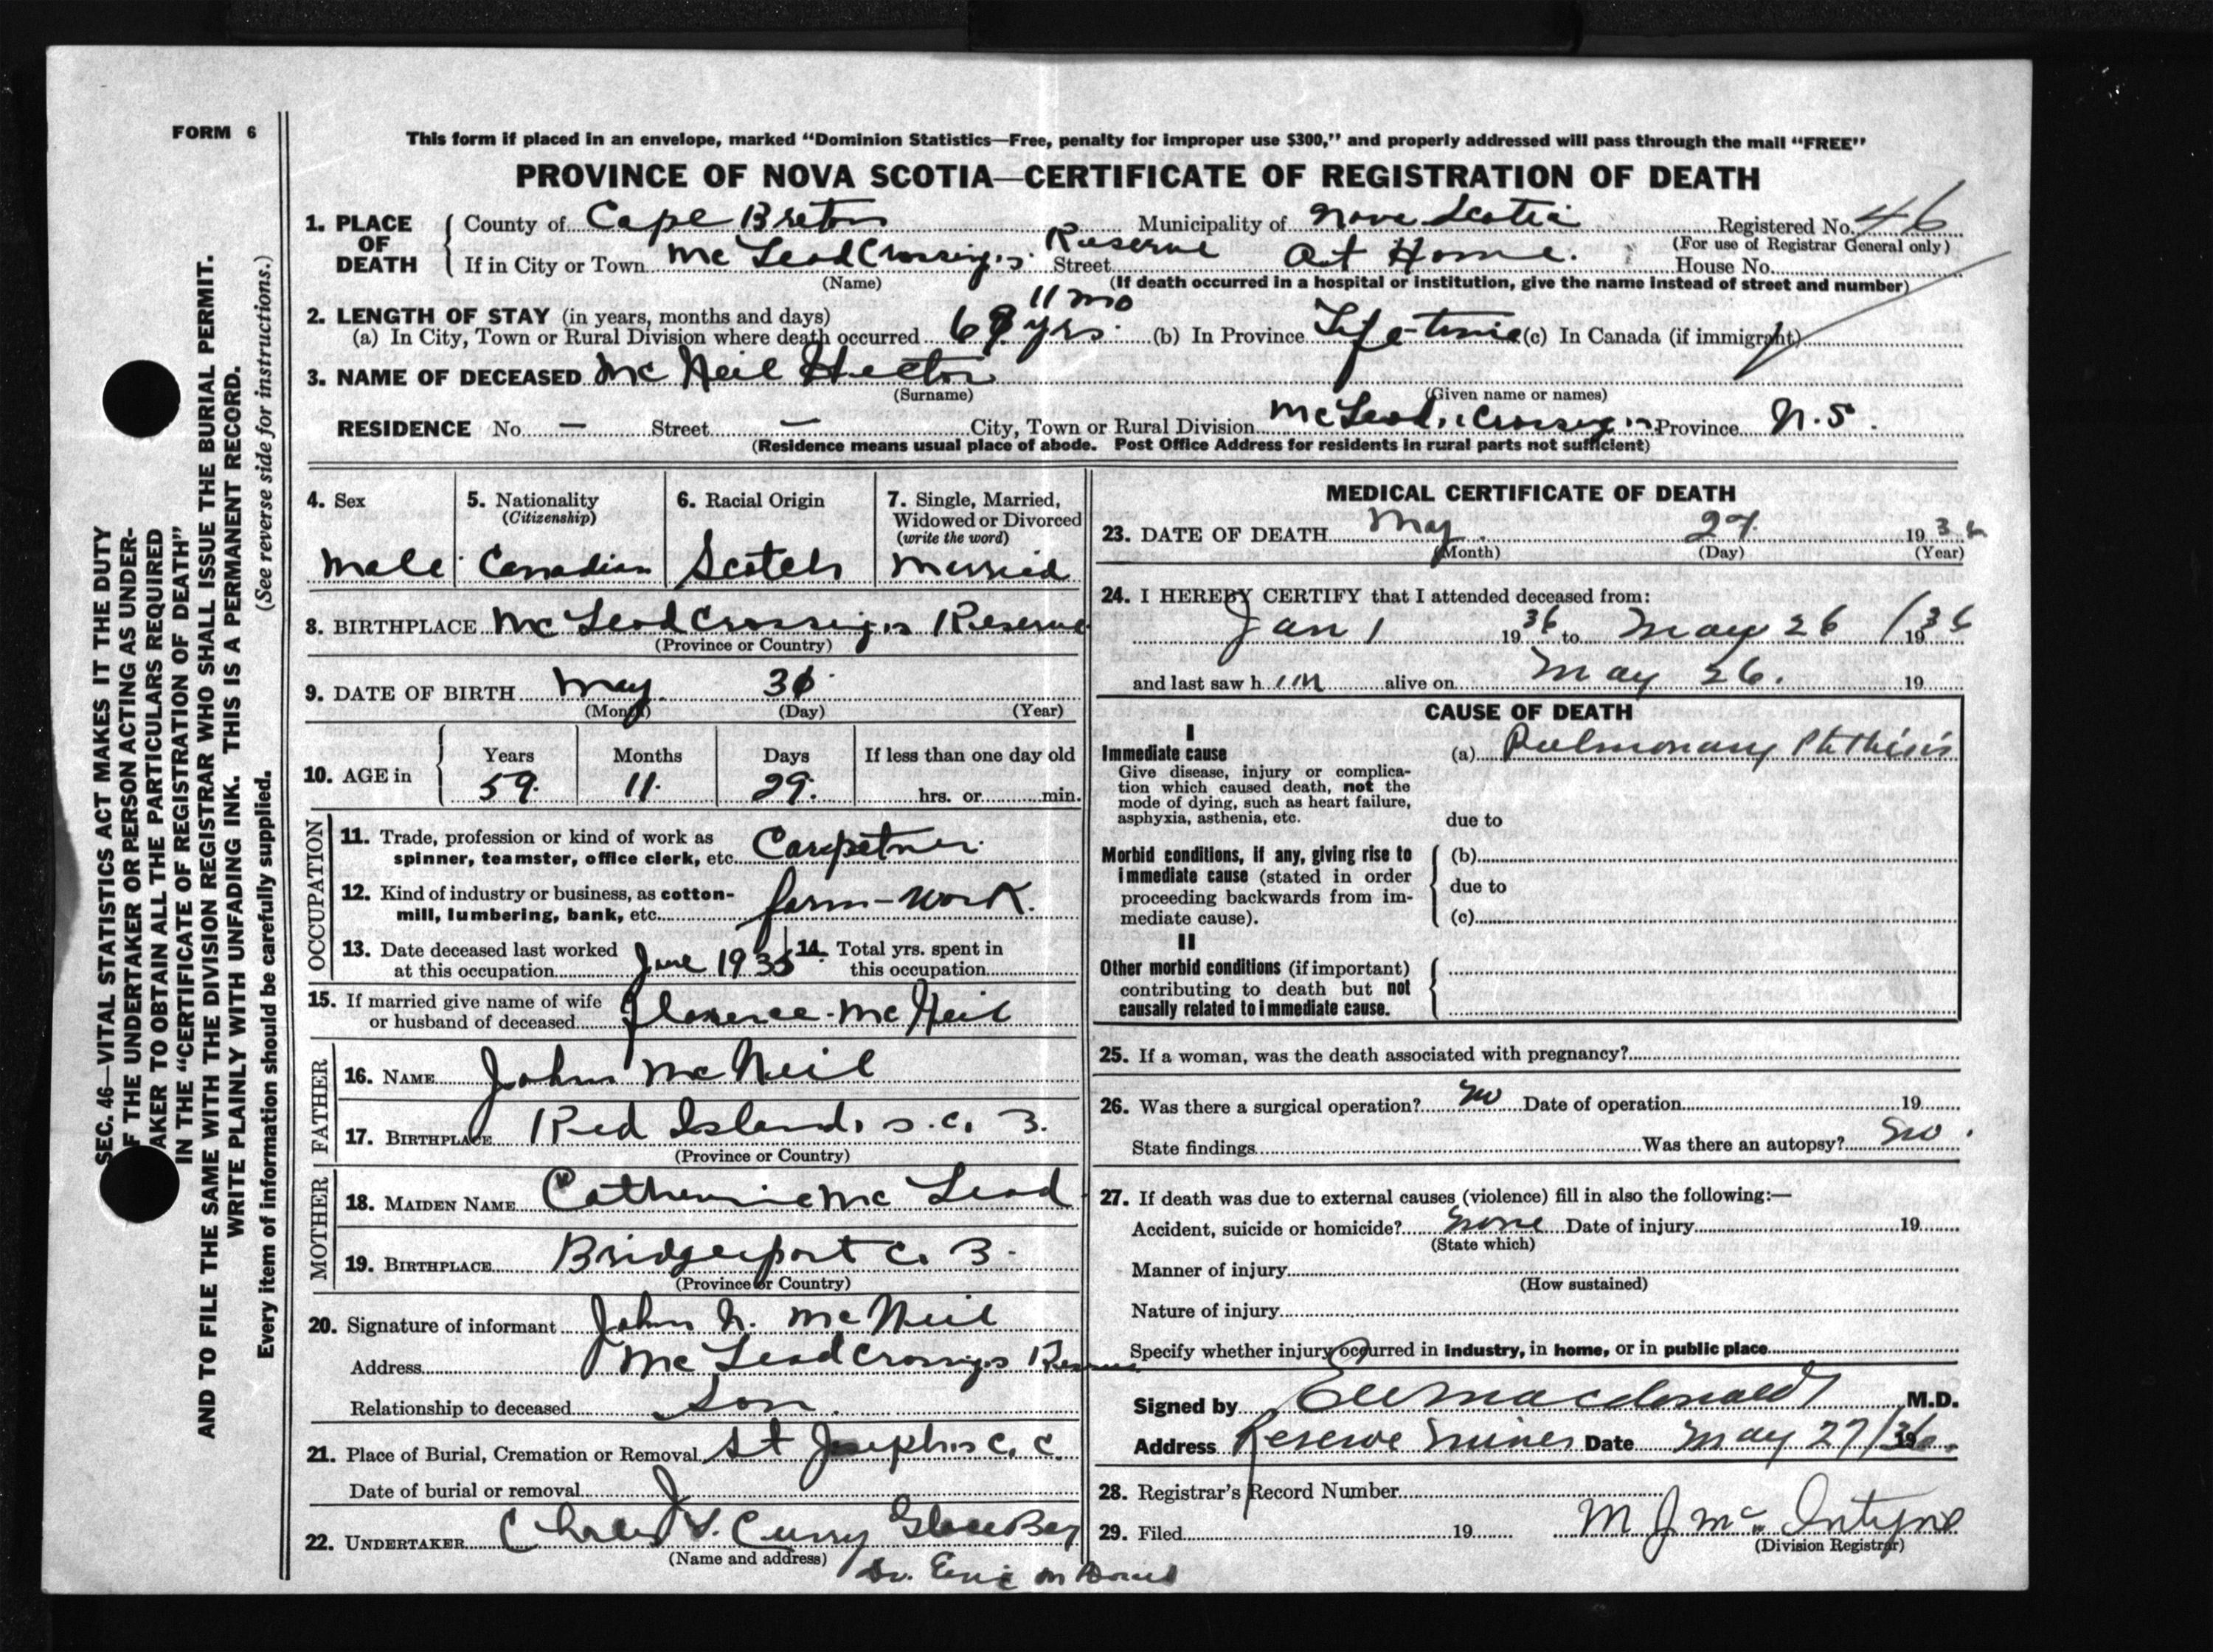 FORM 6
This form if placed in an envelope, marked “Dominion Statistics—Free, penalty for improper use $300,” and properly addressed will pass through the mail “FREE”
PROVINCE OF NOVA SCOTIA—CERTIFICATE OF REGISTRATION OF DEATH
1. PLACE OF DEATH
County of Cape Breton Municipality of Nova Scotia Registered No. 46
(For use of Registrar General only)
If in City or Town McLeod Crossing's Reserve Street At Home. House No.
(Name) (If death occurred in a hospital or institution, give the name instead of street and number)
2. LENGTH OF STAY (in years, months and days) 11 mo
(a) In City, Town or Rural Division where death occurred yrs. (b) In Province Life-time (c) In Canada (if immigrant)
3. NAME OF DECEASED McNeil Hector
(Surname) (Given name or names)
RESIDENCE No. — Street — City, Town or Rural Division McLeod's Crossing Province N.S.
(Residence means usual place of abode. Post Office Address for residents in rural parts not sufficient)
4. Sex
Male
5. Nationality
(Citizenship)
Canadian
6. Racial Origin
Scotch
7. Single, Married,
Widowed or Divorced
(write the word)
Married
8. BIRTHPLACE McLeod Crossing's Reserve
(Province or Country)
9. DATE OF BIRTH May 30
(Month) (Day) (Year)
10. AGE in
Years Months Days If less than one day old
59. 11. 29. hrs. or min.
OCCUPATION
11. Trade, profession or kind of work as
spinner, teamster, office clerk, etc. Carpetner
12. Kind of industry or business, as cotton-
mill, lumbering, bank, etc. farm-work.
13. Date deceased last worked
at this occupation June 1935
14. Total yrs. spent in
this occupation
15. If married give name of wife
or husband of deceased Florence McNeil
FATHER
16. NAME John McNeil
17. BIRTHPLACE Red Island. s. c. B.
(Province or Country)
MOTHER
18. MAIDEN NAME Catherine McLeod
19. BIRTHPLACE Bridgeport C. B.
(Province or Country)
20. Signature of informant John N. McNeil
Address McLeod Crossing's Reserve
Relationship to deceased Son.
21. Place of Burial, Cremation or Removal St Joseph's C. C.
Date of burial or removal
22. UNDERTAKER Charles V. Curry Glace Bay
(Name and address)
Dr. Eric
MEDICAL CERTIFICATE OF DEATH
23. DATE OF DEATH May 27. 1936
(Month) (Day) (Year)
24. I HEREBY CERTIFY that I attended deceased from:
Jan 1 1936 to May 26 / 1936
and last saw h im alive on May 26. 19
CAUSE OF DEATH
I
Immediate cause (a) Pulmonary Phthisis
Give disease, injury or complica-
tion which caused death, not the
mode of dying, such as heart failure,
asphyxia, asthenia, etc.
due to
Morbid conditions, if any, giving rise to
immediate cause (stated in order
proceeding backwards from im-
mediate cause).
(b)
due to
(c)
II
Other morbid conditions (if important)
contributing to death but not
causally related to immediate cause.
25. If a woman, was the death associated with pregnancy?
26. Was there a surgical operation? No Date of operation 19
State findings Was there an autopsy? No.
27. If death was due to external causes (violence) fill in also the following:—
Accident, suicide or homicide? None Date of injury 19
(State which)
Manner of injury
(How sustained)
Nature of injury
Specify whether injury occurred in industry, in home, or in public place
Signed by Macdonald M.D.
Address Reserve Mines Date May 27/36
28. Registrar's Record Number
29. Filed 19 M J McIntyre
(Division Registrar)
SEC. 46—VITAL STATISTICS ACT MAKES IT THE DUTY
F THE UNDERTAKER OR PERSON ACTING AS UNDER-
AKER TO OBTAIN ALL THE PARTICULARS REQUIRED
IN THE “CERTIFICATE OF REGISTRATION OF DEATH”
AND TO FILE THE SAME WITH THE DIVISION REGISTRAR WHO SHALL ISSUE THE BURIAL PERMIT.
WRITE PLAINLY WITH UNFADING INK. THIS IS A PERMANENT RECORD.
Every item of information should be carefully supplied. (See reverse side for instructions.)